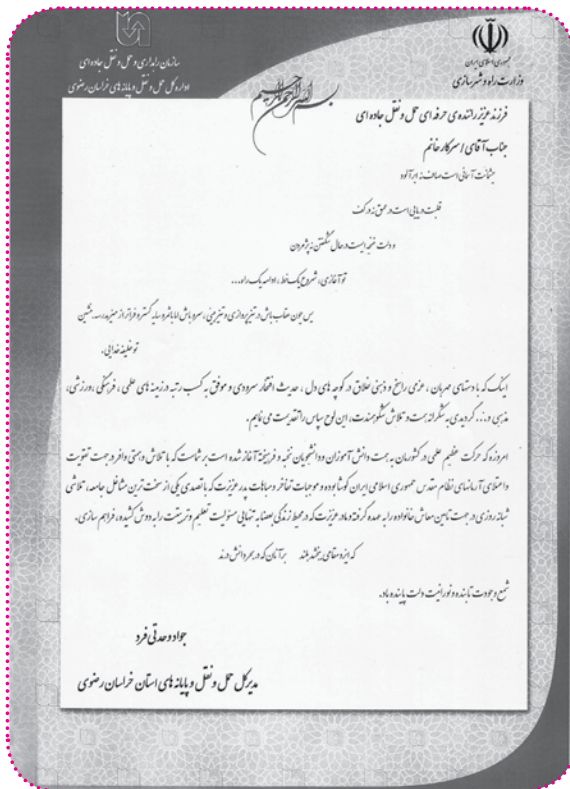 جمهوری اسلامی ایران
وزارت راه و شهرسازی
سازمان راهداری و حمل و نقل جاده ای
اداره کل حمل و نقل و پایانه های خراسان رضوی
بسم الله الرحمن الرحیم
فرزند عزیز راننده ی حرفه ای حمل و نقل جاده ای
جناب آقای / سرکار خانم
چشمانت آسمانی است صاف نه ابر آلود
قلبت دریایی است در عمق نه در کف
و دلت غنچه ایست در حال شکفتن نه پژمردن
تو آغازی، شروع یک خط، ادامه یک راه...
پس چون عقاب باش در تیز پروازی و تیزبینی، سرو باش اما با ثمر و سایه گستر و فراتر از
تو خلیفه خدایی.
اینک که با دستهای مهربان، عزمی راسخ و ذهنی خلاق در کوچه های دل، حدیث افتخار سرودی و موفق به کسب رتبه در زمینه های علمی، فرهنگی، ورزشی،
مذهبی و... گردیدی به شکرانه همت و تلاش شکوهمندت، این لوح سپاس را تقدیمت می نمایم.
امروزه که حرکت عظیم علمی در کشورمان به همت دانش آموزان و دانشجویان نخبه و فرهیخته آغاز شده است بر شماست که با تلاش و همتی وافر در جهت تقویت
و اعتلای آرمانهای نظام مقدس جمهوری اسلامی ایران کوشا بوده و موجبات تفاخر و مباهات پدر عزیزت که با تصدی یکی از سخت ترین مشاغل جامعه، تلاشی
شبانه روزی در جهت تامین معاش خانواده را به عهده گرفته و مادر عزیزت که در محیط زندگی بعضا به تنهایی مسئولیت تعلیم و تربیتت را به دوش کشیده، فراهم سازی.
که ایزد مقامی ببخشد بلند بر آنان که در بحر دانش درند
شمع وجودت تابنده و نورانیت دلت پاینده باد.
جواد وحدتی فرد
مدیرکل حمل و نقل و پایانه های استان خراسان رضوی